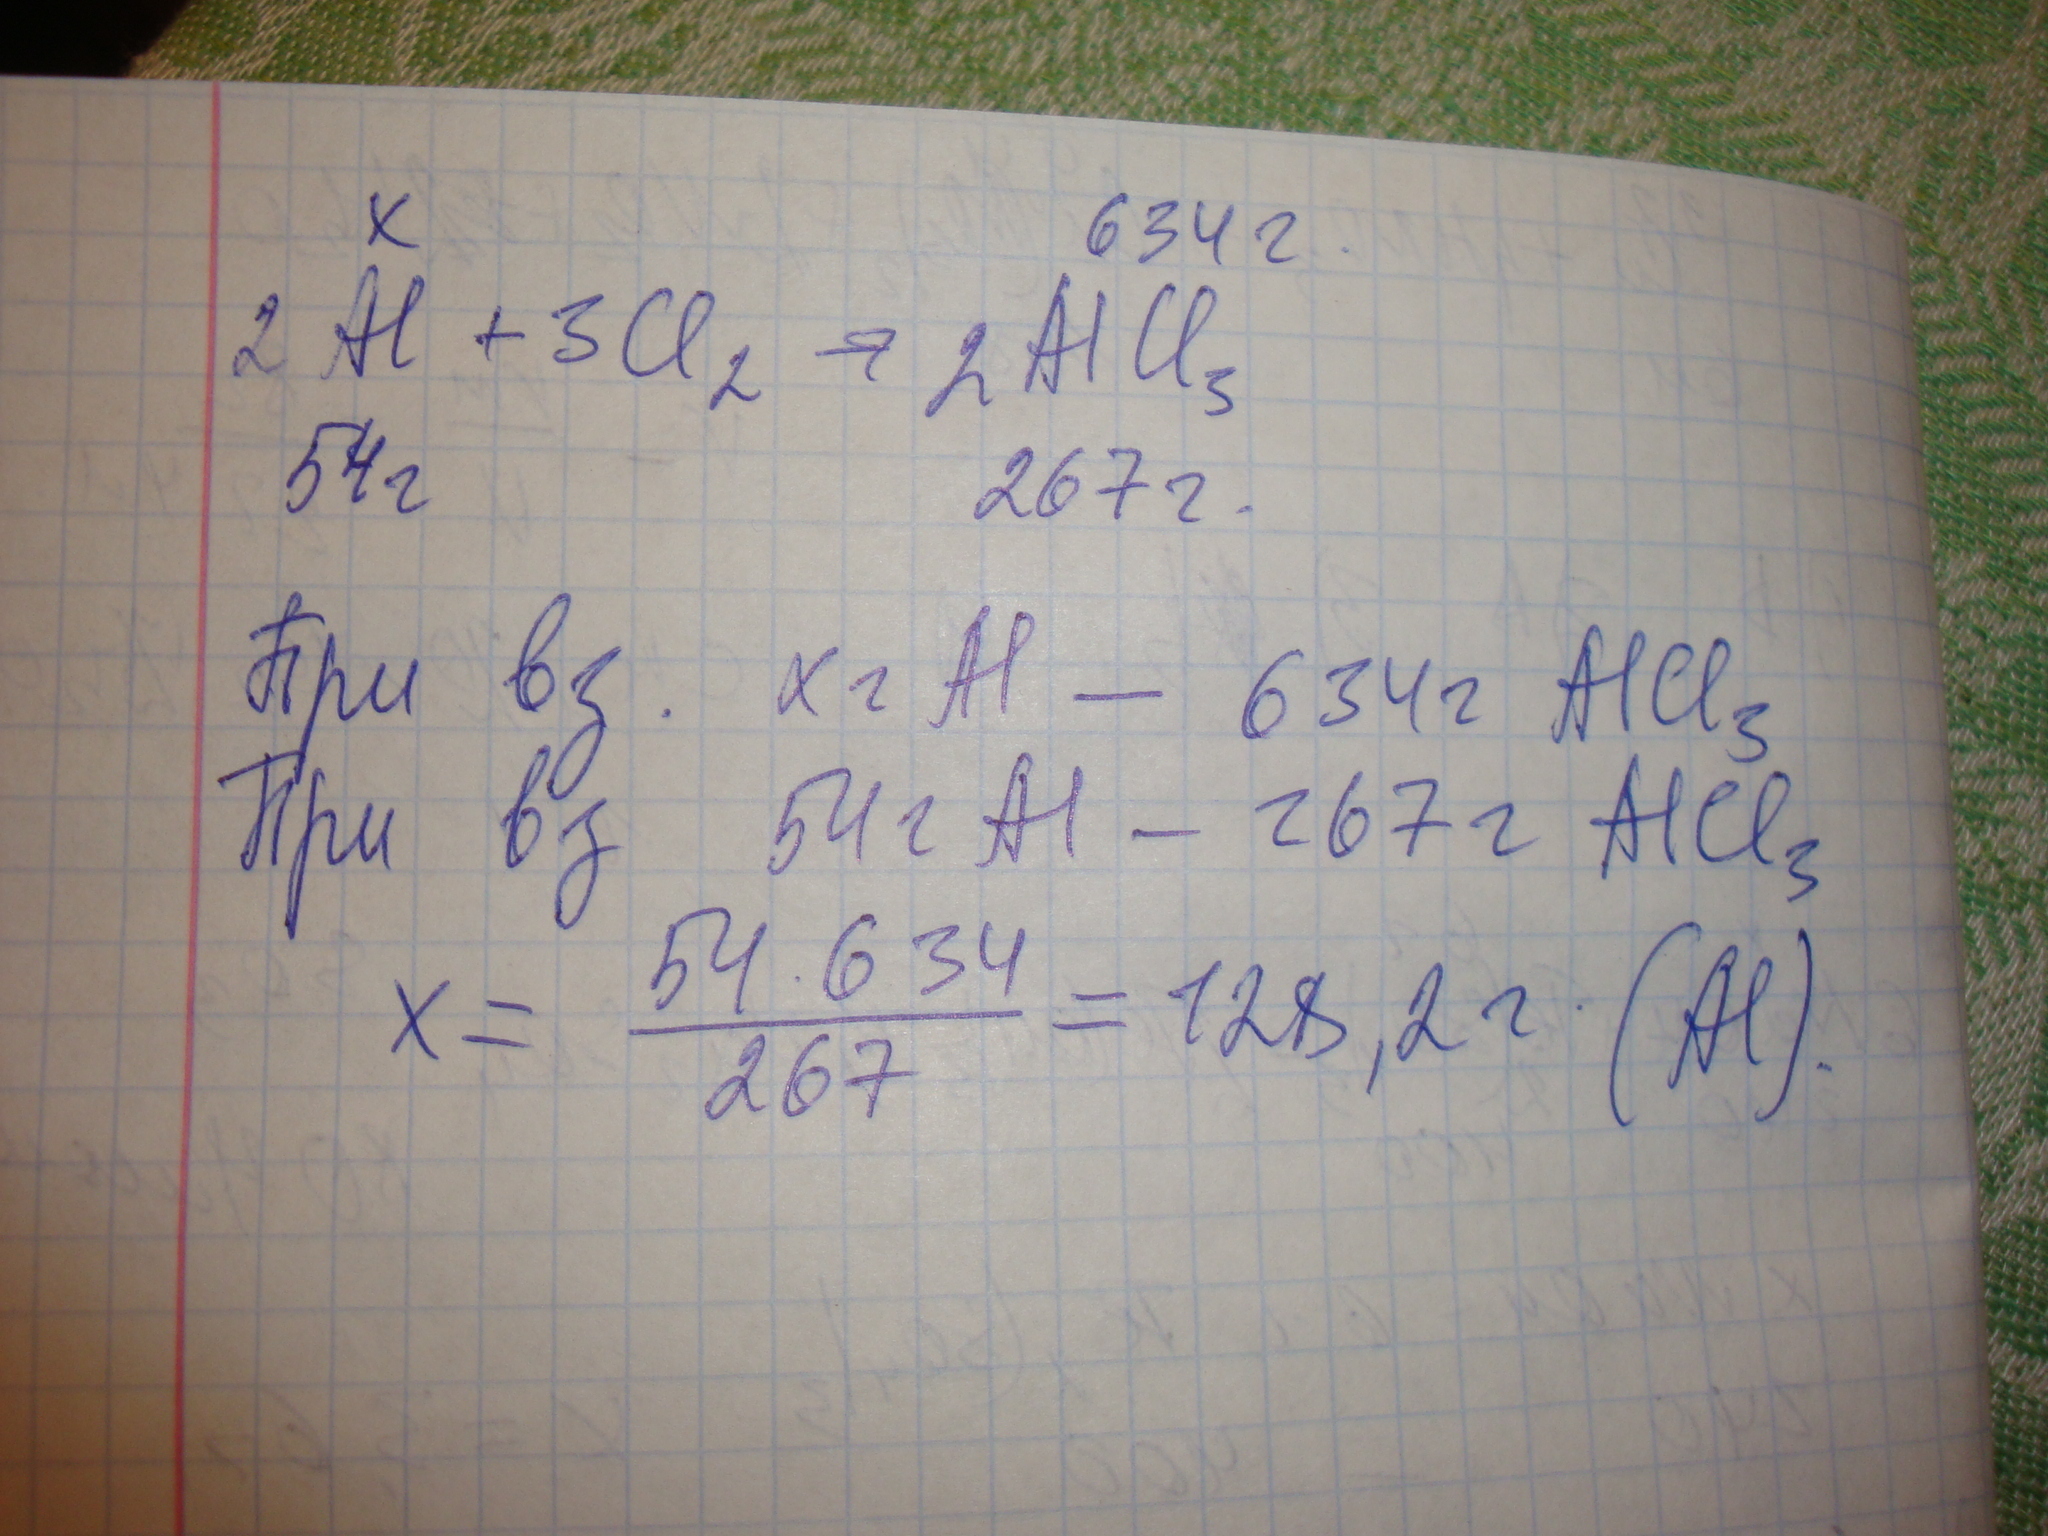 x 634г.
2Al + 3Cl2 → 2AlCl3
54г 267г.
При вз. xг Al — 634г AlCl3
При вз 54г Al — 267г AlCl3
x = 54·634/267 = 128,2г. (Al).